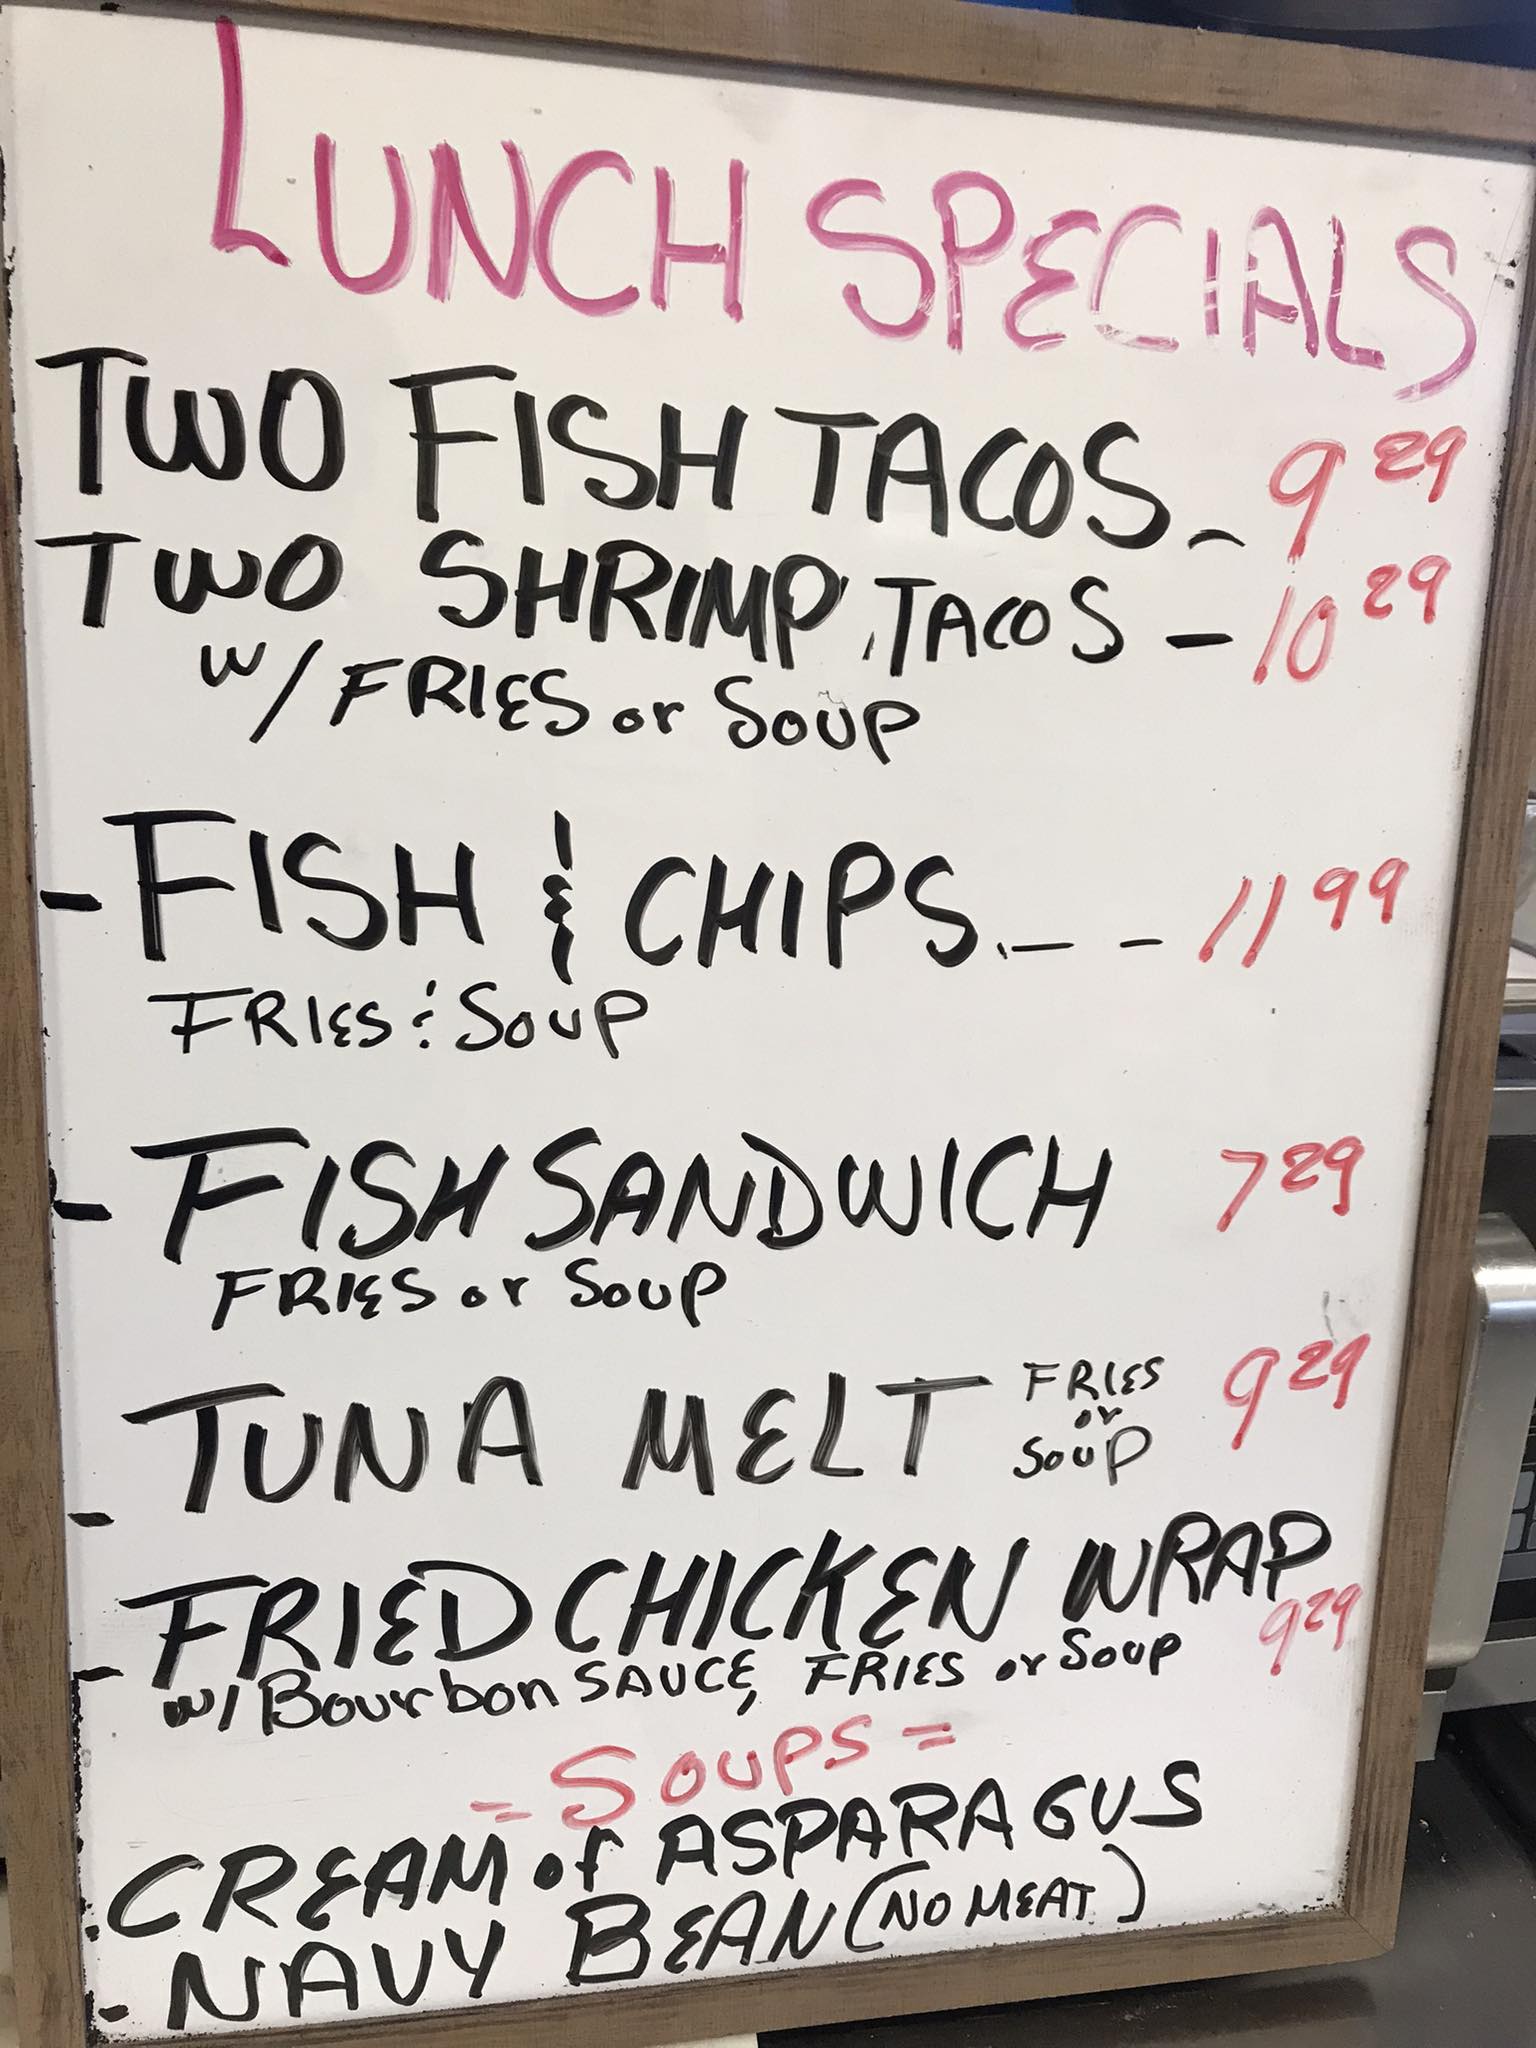 LUNCH SPECIALS
TWO FISH TACOS - 9 29
TWO SHRIMP TACOS - 10 29
W/ FRIES or SOUP
- FISH & CHIPS - - 11 99
FRIES & SOUP
- FISH SANDWICH 7 29
FRIES or SOUP
- TUNA MELT FRIES or SOUP 9 29
- FRIED CHICKEN WRAP 9 29
W/ Bourbon SAUCE, FRIES or SOUP
- SOUPS -
- CREAM of ASPARAGUS
- NAVY BEAN (NO MEAT)